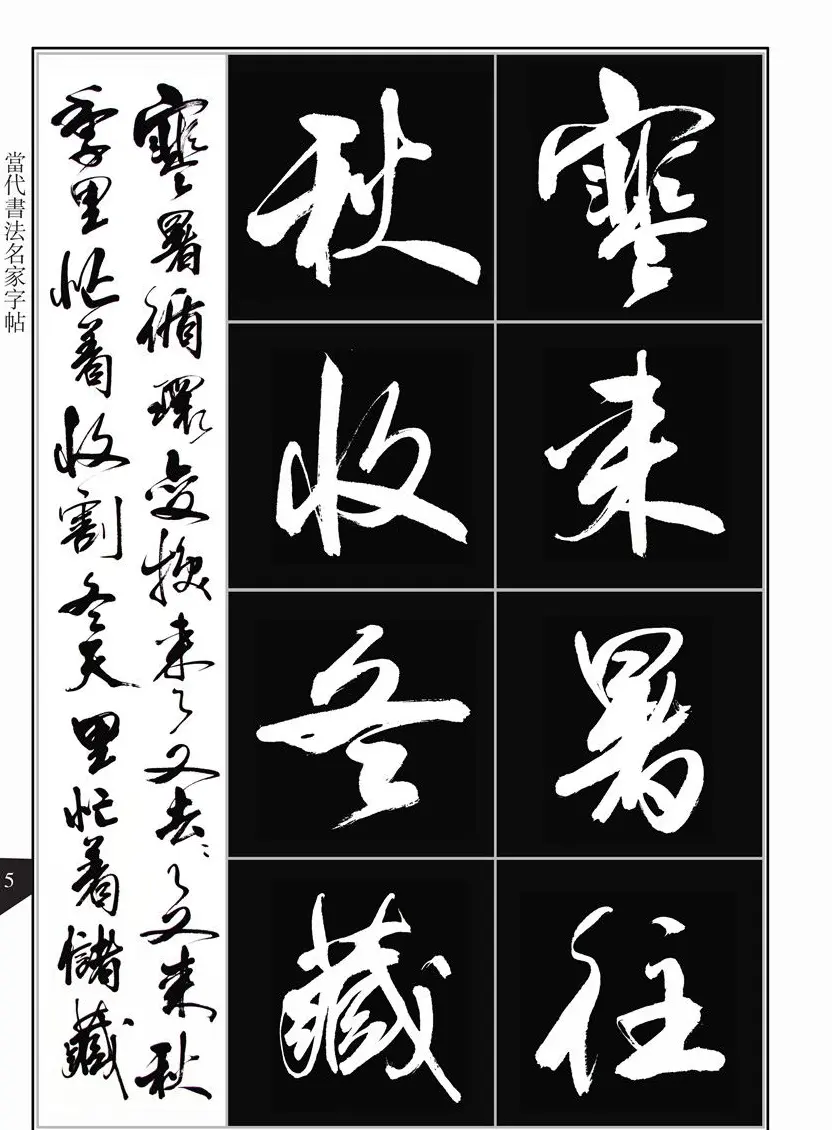 寒来暑往
秋收冬藏
寒暑循環变换来了又去〻了又来秋
季里忙着收割冬天里忙着儲藏
當代書法名家字帖
5